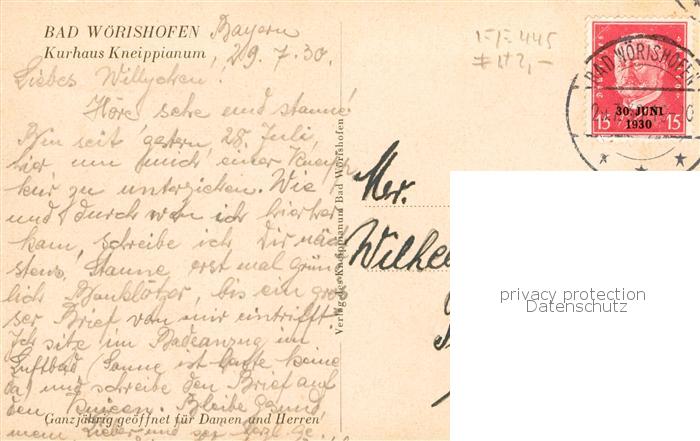 BAD WÖRISHOFEN Bayern
Kurhaus Kneippianum, 29.7.30.
Liebes Willychen!
Höre sehe und staune!
Bin seit gestern, 28. Juli,
hier um mich einer Kneipp
kur zu unterziehen. Wie
und durch wen ich hierher
kam, schreibe ich Dir näch
stens. Staune erst mal gründ
lich Bauklötzer, bis ein gro
ser Brief von mir eintrifft.
Ich sitze im Badeanzug im
Luftbad (Sonne ist heute keine
da) und schreibe den Brief auf
den Knieen. Bleibe gesund
mein Lieber und sei herzl. ge
Ganzjährig geöffnet für Damen und Herren
Verlag des Kneippianum Bad Wörishofen
1-1-445
BAD WÖRISHOFEN
30. JUNI
1930
15 15
Mr.
Wilhe
privacy protection
Datenschutz